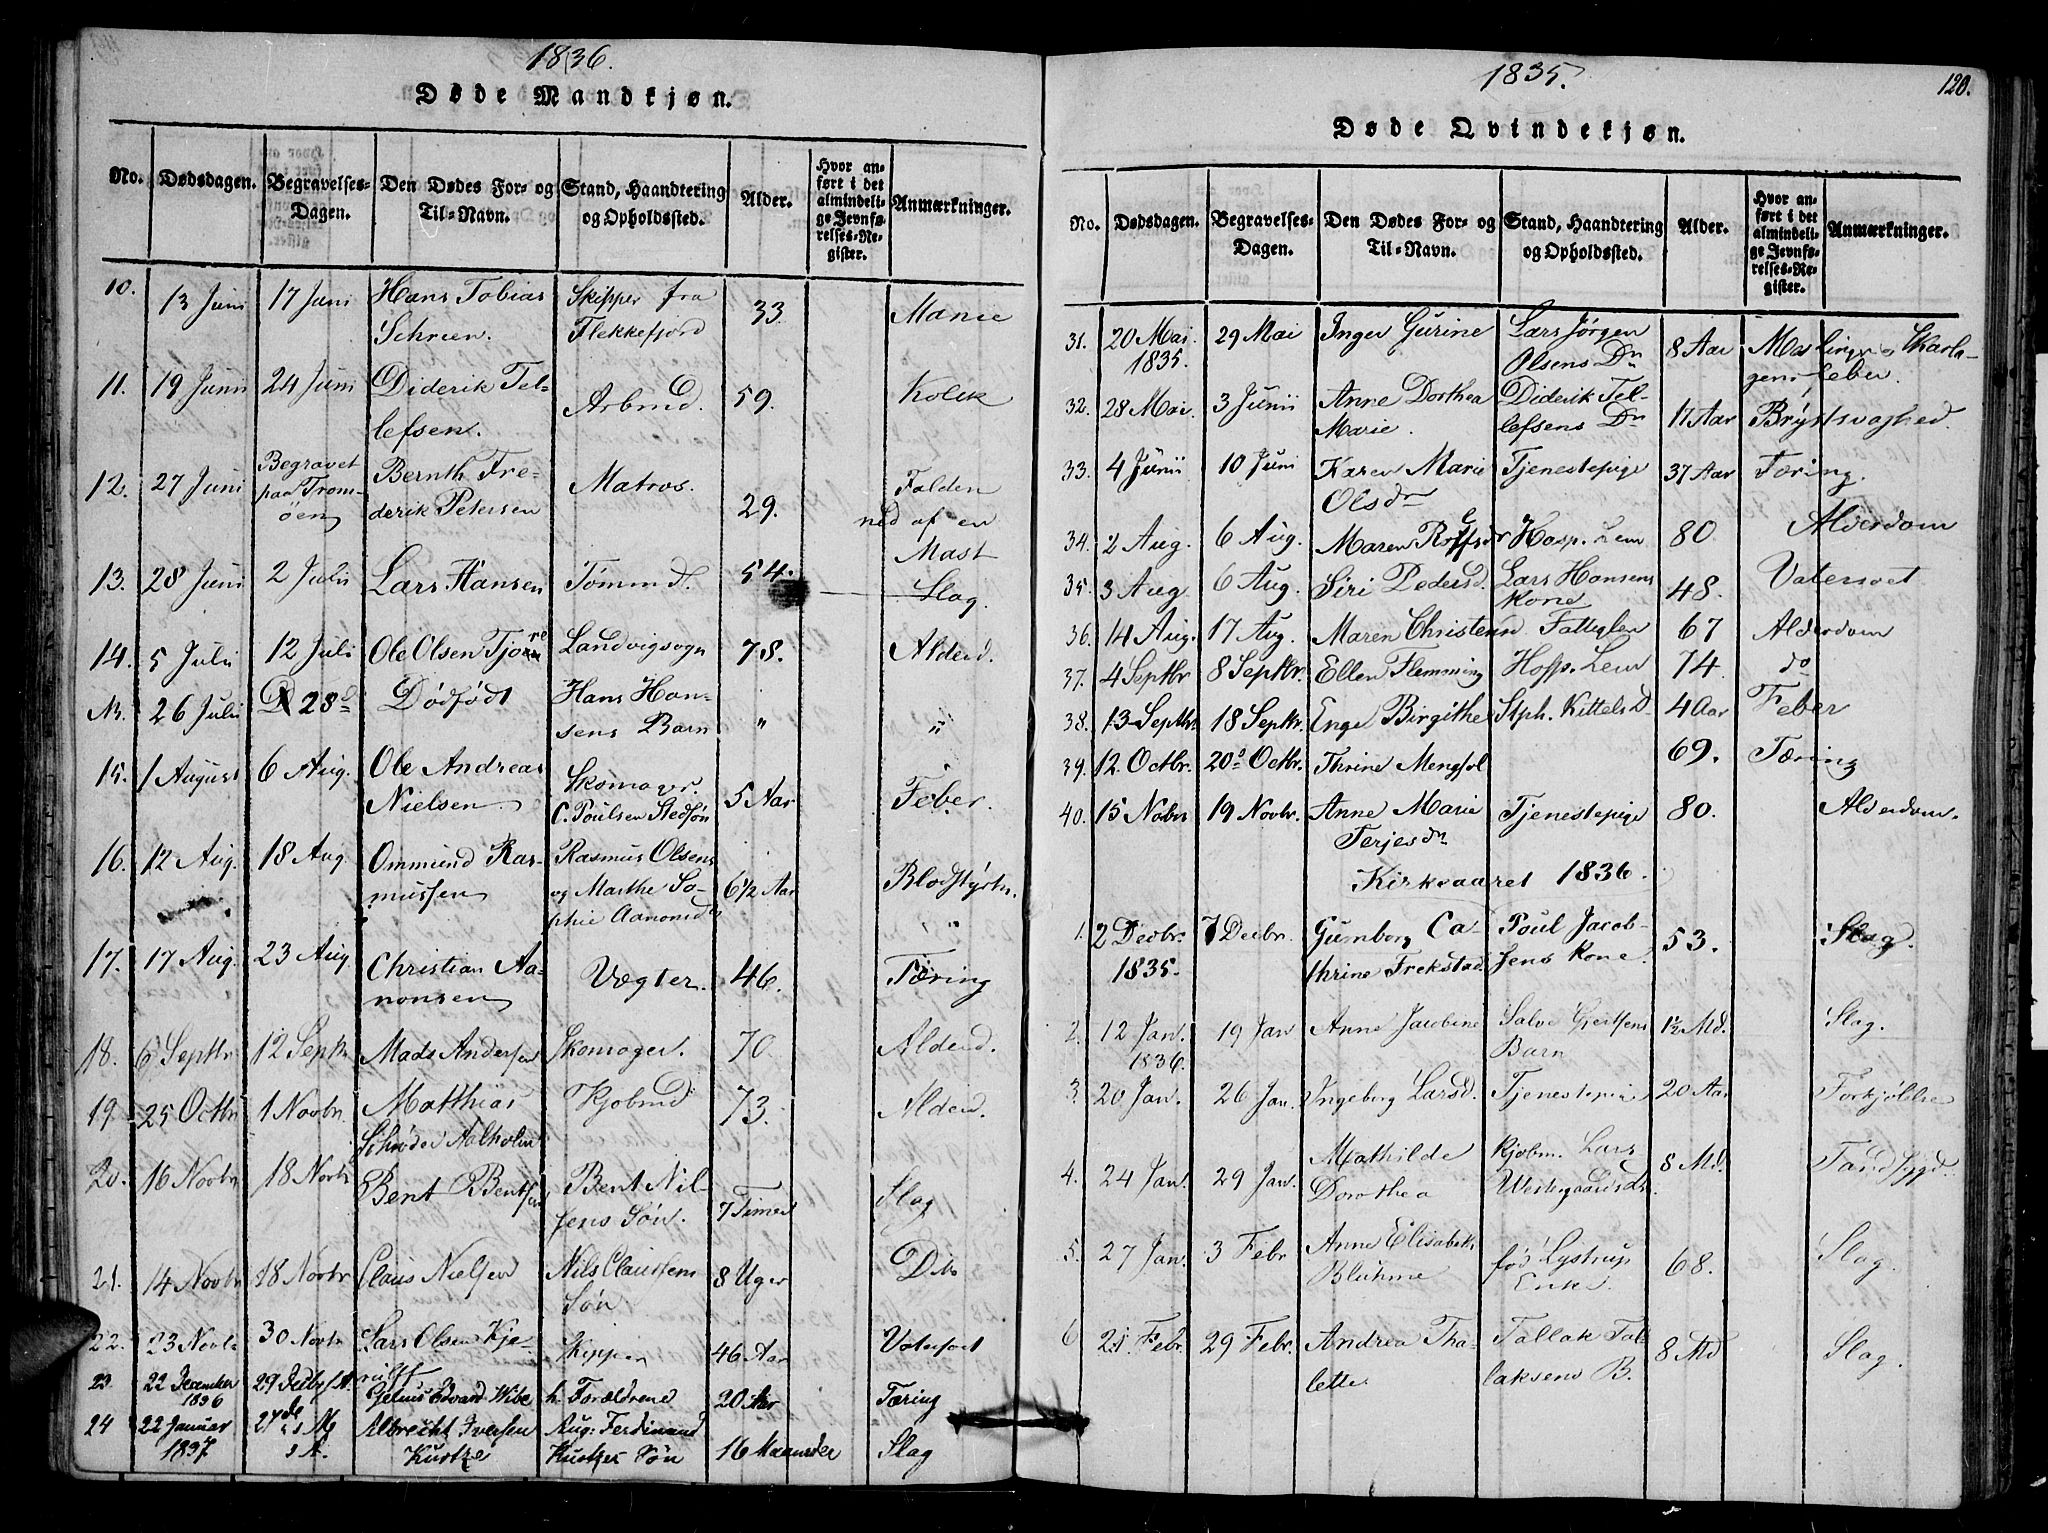 1836.
Døde Mandkjøn.
No. Dødsdagen. Begravelses-Dagen. Den Dødes For- og Til-Navn. Stand, Haandtering og Opholdssted. Alder. Hvor anført i det almindelige Jevnførelses-Register. Anmærkninger.
10. 13 Juni 17 Juni Hans Tobias Skipper fra 33. Manie
Schreen. Flekkefjord
11. 19 Juni 24 Juni Diderik Tel- Arbmd. 59. Kolik
lefsen.
12. 27 Juni Begravet Bernth Fre- Matros. 29. Falden
paa Trom- derik Petersen ned af en
øen Mast
13. 28 Juni 2 Juli Lars Hansen Tømmd. 54. Slag.
14. 5 Juli 12 Juli Ole Olsen Landvigsogn 78. Alderd.
26 Juli 28 Dødfødt Hans Han- " "
sens Barn
15. 1 August 6 Aug. Ole Andreas Skomager 5 Aar Feber.
Nielsen C. Poulsen Stedsøn
16. 12 Aug. 18 Aug. Ommund Ras- Rasmus Olsens 6 1/2 Aar Blodstyrtn.
mussen og Marthe So-
phie Aanonsd
17. 17 Aug. 23 Aug Christian Aa- Vægter. 46. Tæring
nonsen
18. 6 Septbr 12 Septbr Mads Andersen Skomager. 70. Alderd.
19. 25 Octbr 1 Novbr Matthias Kjøbmd 73. Alderd.
Schrøder Aalholm
20. 16 Novbr 18 Novbr Bent Bentsen Bent Nil- 7 Timer Slag
sens Søn.
21. 14 Novbr 18 Novbr Claus Nielsen Nils Claussens 8 Uger Do
Søn
22. 23 Novb. 30 Novbr Lars Olsen Kje- Skipper 46 Aar Vatersot
rulff
23 22 December 29 Edvard Wibe h. Forældrene 20 Aar Tæring
1836
24 22 Januar 27de Albrecht Iversen Aug: Ferdinand 16 Maaneder Slag
1837. Kuske Kuskes Søn
1835.
120.
Døde Qvindekjøn.
No. Dødsdagen. Begravelses-Dagen. Den Dødes For- og Til-Navn. Stand, Haandtering og Opholdssted. Alder. Hvor anført i det almindelige Jevnførelses-Register. Anmærkninger.
31. 20 Mai. 29 Mai Inger Gurine Lars Jørgen 8 Aar Maslinger Skarla-
1835. Olsens Dr gensfeber.
32. 28 Mai. 3 Junii Anne Dorthea Diderik Tel- 17 Aar Brystsvaghed.
Marie. lefsens Dr
33. 4 Junii 10 Juni Karen Marie Tjenestepige 37 Aar Tæring.
Olsdr
34. 2 Aug. 6 Aug. Maren Hosp. Lem 80. Alderdom
35. 3 Aug. 6 Aug. Siri Pedersd. Lars Hansens 48. Vatersot
Kone
36. 14 Aug. 17 Aug. Maren Christensd Fattiglem 67 Alderdom
37. 4 Septbr 8 Septbr. Ellen Flemming Hosp. Lem 74. do
38. 13 Septbr 18 Septbr. Enge Birgithe Stph. Kittels D. 4 Aar Feber
39. 12 Octbr. 20 Octbr. Thrine Mengsol 69. Tæring
40. 15 Nobr 19 Novbr. Anne Marie Tjenestepige 80. Alderdom.
Terjesdr
Kirkeaaret 1836.
1. 2 Decbr. 7 Decbr. Gunborg Ca- Poul Jacob- 53. Slag.
1835. thrine Frekstad sens Kone.
2. 12 Jan. 19 Jan Anne Jacobine Salve Gjertsens 1 1/2 Md. Slag.
1836. Barn
3. 20 Jan. 26 Jan. Ingeborg Larsd. Tjenestepige 20 Aar Forkjølelse
4. 24 Jan. 29 Jan. Mathilde Kjøbm. Lars 8 Md. Tandsygd.
Dorothea Westergaards D.
5. 27 Jan. 3 Febr. Anne Elisabeth Lystrup 68. Slag.
Bluhme Enke.
6 21 Febr. 29 Febr. Andrea Tha- Tallak Tal- 8 Md Slag.
lette laksens B.